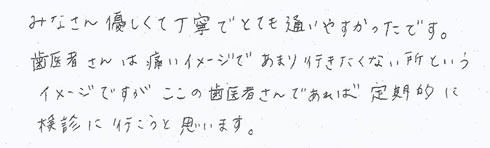 みなさん優しくて丁寧でとても通いやすかったです。
歯医者さんは痛いイメージであまり行きたくない所という
イメージですがここの歯医者さんであれば定期的に
検診に行こうと思います。